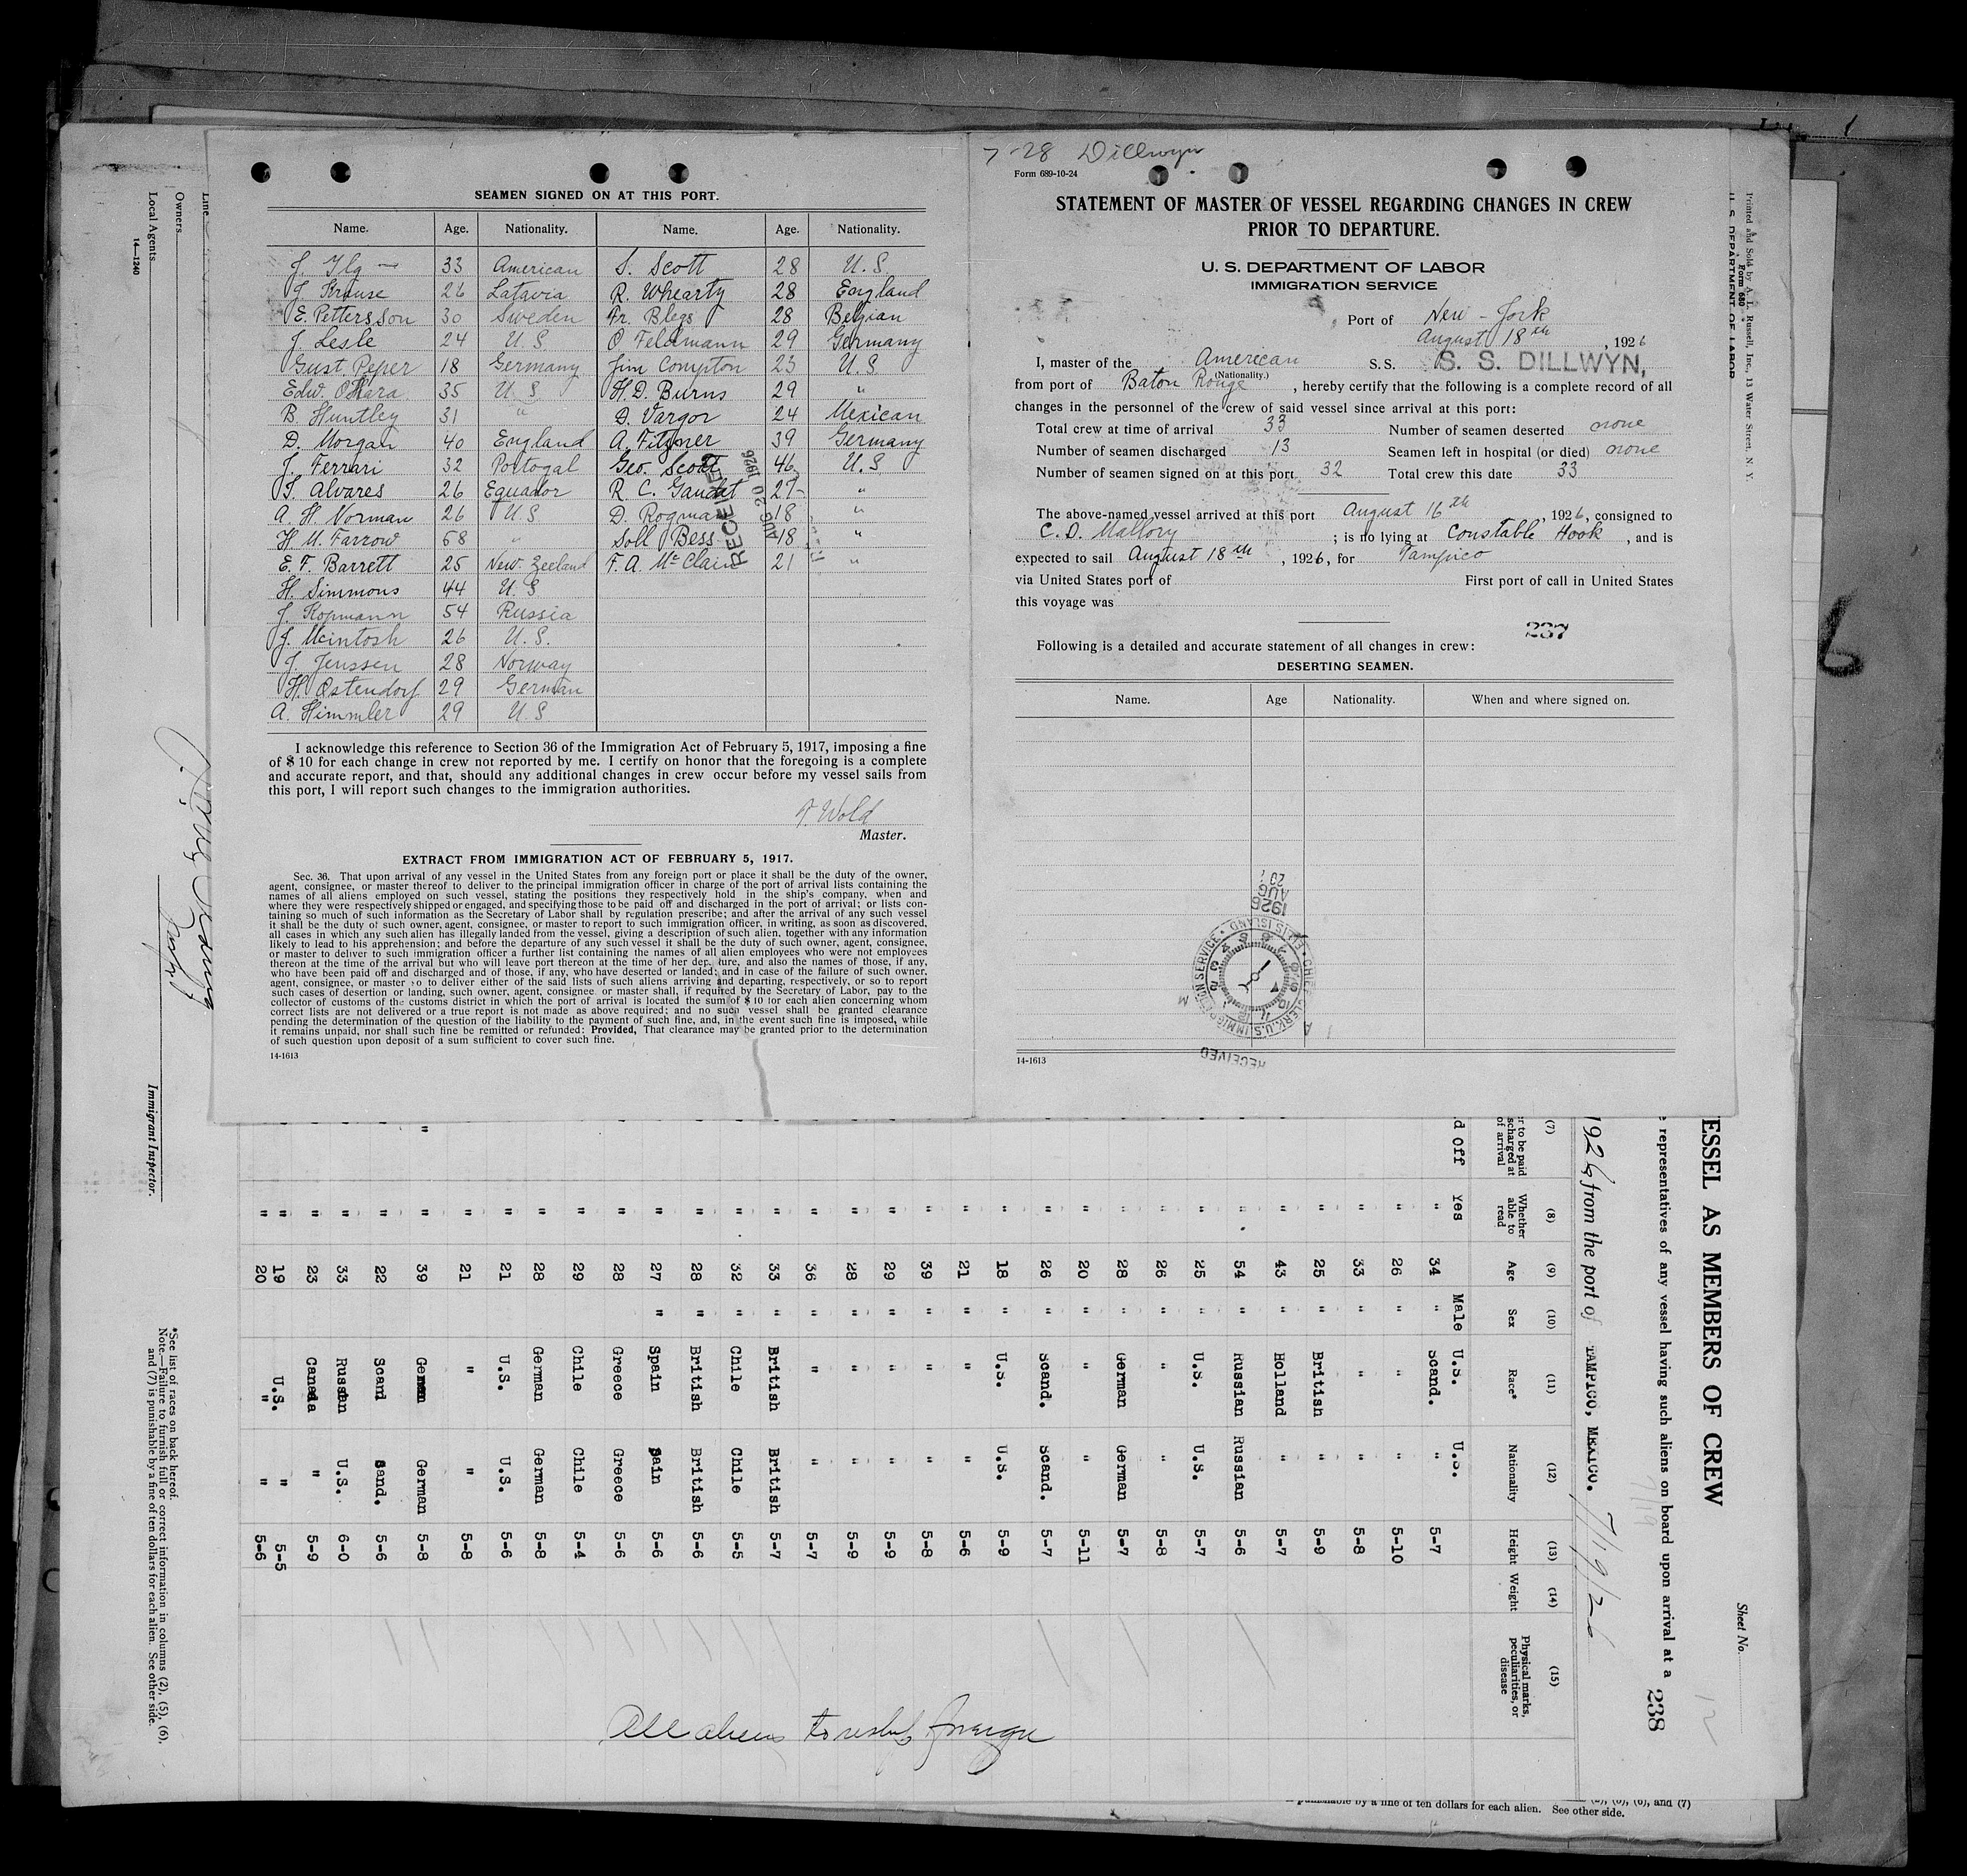 SEAMEN SIGNED ON AT THIS PORT.
Name. Age. Nationality. Name. Age. Nationality.
J. Ilg — 33 American S. Scott 28 U. S
J. Krause 26 Latavia R. Whearty 28 England
E. Pettersson 30 Sweden Fr. Blegs 28 Belgian
J. Lesle 24 U. S O Feldmann 29 Germany
Gust Peper 18 Germany Jim Compton 23 U. S
Edw. O'Hara 35 U. S H. D. Burns 29 "
B. Huntley 31 " D. Vargor 24 Mexican
D. Morgan 40 England A. Fitzner 39 Germany
J. Ferrari 32 Portogal Geo. Scott 46 U. S
S. Alvares 26 Equador R. C. Gaudet 27 "
A. H. Norman 26 U. S D. Rogman 18 "
H. M. Farrow 58 " Soll Bess 48 "
E. F. Barrett 25 New. Zeeland F. A. McClain 21 "
H. Simmons 44 U. S
J. Kopmann 54 Russia
J. Mcintosh 26 U. S.
J. Jenssen 28 Norway
H. Ostendorf 29 German
A. Himmler 29 U. S
RECEIVED
AUG 20 1926
I acknowledge this reference to Section 36 of the Immigration Act of February 5, 1917, imposing a fine
of $ 10 for each change in crew not reported by me. I certify on honor that the foregoing is a complete
and accurate report, and that, should any additional changes in crew occur before my vessel sails from
this port, I will report such changes to the immigration authorities.
T. Wold
Master.
EXTRACT FROM IMMIGRATION ACT OF FEBRUARY 5, 1917.
Sec. 36. That upon arrival of any vessel in the United States from any foreign port or place it shall be the duty of the owner,
agent, consignee, or master thereof to deliver to the principal immigration officer in charge of the port of arrival lists containing the
names of all aliens employed on such vessel, stating the positions they respectively hold in the ship's company, when and
where they were respectively shipped or engaged, and specifying those to be paid off and discharged in the port of arrival; or lists con-
taining so much of such information as the Secretary of Labor shall by regulation prescribe; and after the arrival of any such vessel
it shall be the duty of such owner, agent, consignee, or master to report to such immigration officer, in writing, as soon as discovered,
all cases in which any such alien has illegally landed from the vessel, giving a description of such alien, together with any information
likely to lead to his apprehension; and before the departure of any such vessel it shall be the duty of such owner, agent, consignee,
or master to deliver to such immigration officer a further list containing the names of all alien employees who were not employees
thereon at the time of the arrival but who will leave port thereon at the time of her dep ture, and also the names of those, if any,
who have been paid off and discharged and of those, if any, who have deserted or landed; and in case of the failure of such owner,
agent, consignee, or master so to deliver either of the said lists of such aliens arriving and departing, respectively, or so to report
such cases of desertion or landing, such owner, agent, consignee or master shall, if required by the Secretary of Labor, pay to the
collector of customs of the customs district in which the port of arrival is located the sum of $ 10 for each alien concerning whom
correct lists are not delivered or a true report is not made as above required; and no such vessel shall be granted clearance
pending the determination of the question of the liability to the payment of such fine, and, in the event such fine is imposed, while
it remains unpaid, nor shall such fine be remitted or refunded: Provided, That clearance may be granted prior to the determination
of such question upon deposit of a sum sufficient to cover such fine.
14-1613
7-28 Dillwyn
Form 689-10-24
STATEMENT OF MASTER OF VESSEL REGARDING CHANGES IN CREW
PRIOR TO DEPARTURE.
U. S. DEPARTMENT OF LABOR
IMMIGRATION SERVICE
Port of New-York
August 18th, 1926
I, master of the American S.S. S. S. DILLWYN,
(Nationality.)
from port of Baton Rouge, hereby certify that the following is a complete record of all
changes in the personnel of the crew of said vessel since arrival at this port:
Total crew at time of arrival 33 Number of seamen deserted none
Number of seamen discharged 13 Seamen left in hospital (or died) none
Number of seamen signed on at this port 32 Total crew this date 33
The above-named vessel arrived at this port August 16th, 1926, consigned to
C. D. Mallory; is no lying at Constable Hook, and is
expected to sail August 18th, 1926, for Tampico
via United States port of First port of call in United States
this voyage was
237
Following is a detailed and accurate statement of all changes in crew:
DESERTING SEAMEN.
Name. Age Nationality. When and where signed on.
1926
AUG
20
CHIEF CLERK, U.S. IMMIGRATION SERVICE • ELLIS ISLAND
RECEIVED
14-1613
Line
Owners
Local Agents
14—1240
Immigrant Inspector.
*See list of races on back hereof.
Note.—Failure to furnish full or correct information in columns (2), (5), (6),
and (7) is punishable by a fine of ten dollars for each alien. See other side.
Printed and Sold by A. L. Russell, Inc., 13 Water Street, N. Y.
Form 680
U. S. DEPARTMENT OF LABOR
Sheet No.
12
ESSEL AS MEMBERS OF CREW
representatives of any vessel having such aliens on board upon arrival at a
238
1926 from the port of TAMPICO, MEXICO. 7/19/26
(7) (8) (9) (10) (11) (12) (13) (14) (15)
r to be paid scharged at of arrival Whether able to read Age Sex Race* Nationality Height Weight Physical marks, peculiarities, or disease
d off Yes Male U.S. U.S.
" 34 " Scand. " 5-7
" 26 " " " 5-10
" 33 " " " 5-8
" 25 " British " 5-9
" 43 " Holland " 5-7
" 54 " Russian Russian 5-6
" 25 " U.S. U.S. 5-7
" 26 " " " 5-8
" 28 " German German 5-7
" 20 " " " 5-11
" 26 " Scand. Scand. 5-7
" 18 " U.S. U.S. 5-9
" 21 " " " 5-6
" 39 " " " 5-8
" 29 " " " 5-9
" 28 " " " 5-9
" 36 " " " 5-7
" 33 " British British 5-7
" 32 " Chile Chile 5-5
" 28 " British British 5-6
" 27 " Spain Spain 5-6
" 28 Greece Greece 5-6
" 29 Chile Chile 5-4
" 28 German German 5-8
" 21 U.S. U.S. 5-6
" 21 " " 5-8
" " 39 German German 5-8
" 22 Scand Sand. 5-6
" 33 Russian U.S. 6-0
" 23 Canada " 5-9
" 19 U.S. " 5-5
" 20 " " 5-6
All aliens to reship foreign
(5), (6), and (7)
is punishable by a fine of ten dollars for each alien. See other side.